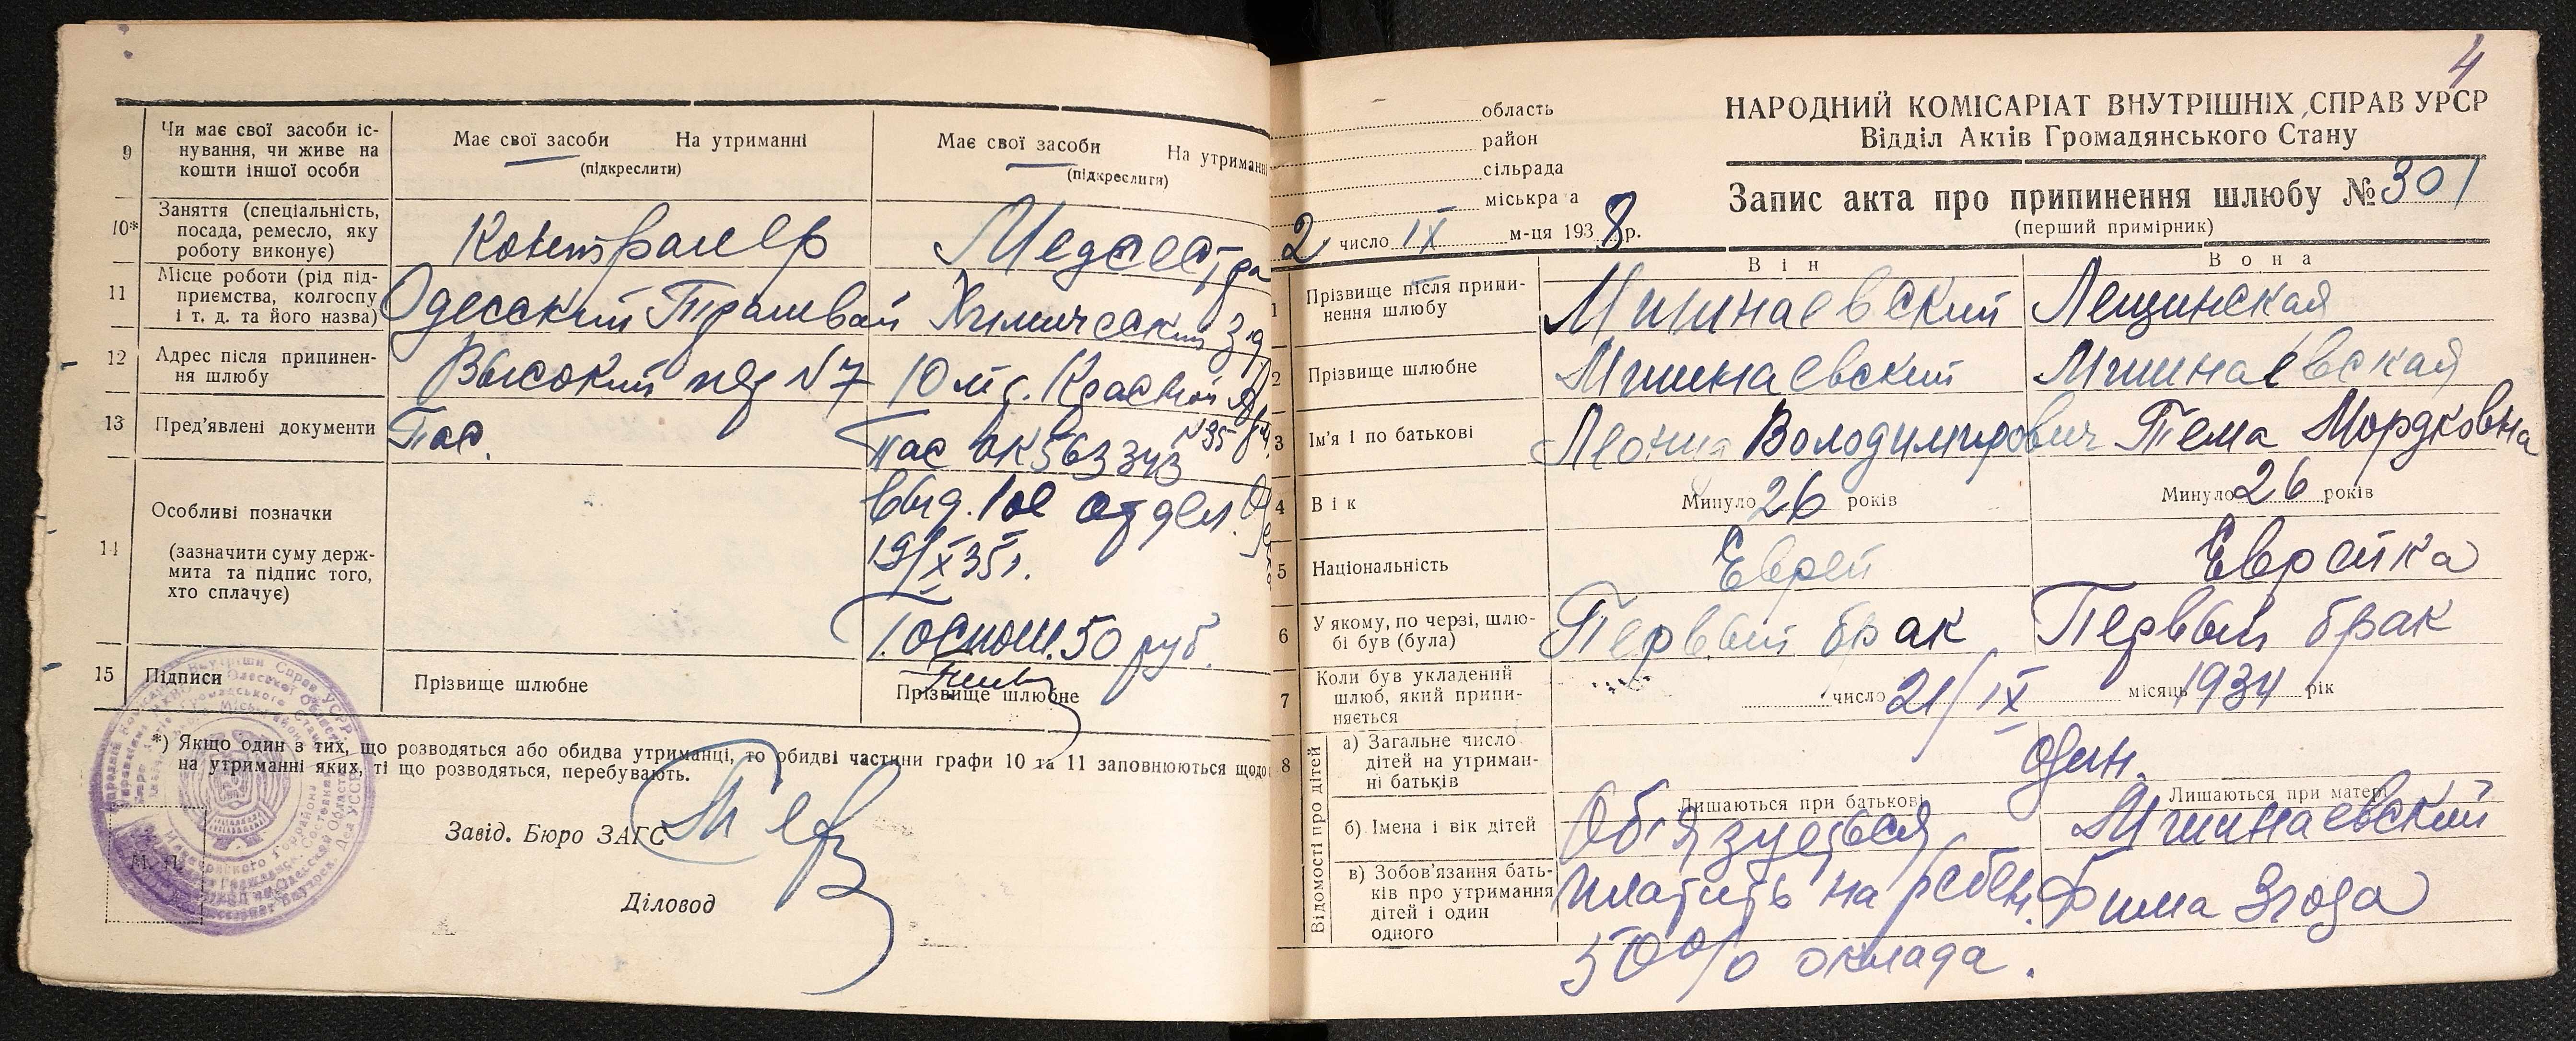 9
Чи має свої засоби іс-
нування, чи живе на
кошти іншої особи
Має свої засоби На утриманні
(підкреслити)
Має свої засоби На утриманні
(підкреслити)
10*
Заняття (спеціальність,
посада, ремесло, яку
роботу виконує)
Контралер
Медсестра
11
Місце роботи (рід під-
приємства, колгоспу
і т. д. та його назва)
Одесский Трамвай
Химический
12
Адрес після припинен-
ня шлюбу
Высокий пер N 7
10 ст. Красной
N 35
13
Пред'явлені документи
Пас.
Пас ОК 563343
14
Особливі позначки
(зазначити суму держ-
мита та підпис того,
хто сплачує)
выд. 1ое отдел.
19/X 35 г.
Госпош. 50 руб.
15
Підписи
Прізвище шлюбне
Прізвище шлюбне
*) Якщо один з тих, що розводяться або обидва утриманці, то обидві частини графи 10 та 11 заповнюються щодо
на утриманні яких, ті що розводяться, перебувають.
Завід. Бюро ЗАГС
Діловод
М. П.
4
область
район
сільрада
міськрада
2 число IX м-ця 1938 р.
НАРОДНИЙ КОМІСАРІАТ ВНУТРІШНІХ СПРАВ УРСР
Відділ Актів Громадянського Стану
Запис акта про припинення шлюбу № 301
(перший примірник)
Він
Вона
1
Прізвище після припи-
нення шлюбу
Мшинаевский
Лещинская
2
Прізвище шлюбне
Мшинаевский
Мшинаевская
3
Ім'я і по батькові
Леонид Володимирович
Тема Мордковна
4
Вік
Минуло 26 років
Минуло 26 років
5
Національність
Еврей
Еврейка
6
У якому, по черзі, шлю-
бі був (була)
Первый брак
Первый брак
7
Коли був укладений
шлюб, який припи-
няється
число 21/IX місяць 1934 рік
8
Відомості про дітей
а) Загальне число
дітей на утриман-
ні батьків
Один.
б) Імена і вік дітей
Лишаються при батькові
Лишаються при матері
Мшинаевский
Фима 3 года
в) Зобов'язання бать-
ків про утримання
дітей і один
одного
Обязуеться
платить на ребен.
50% оклада.